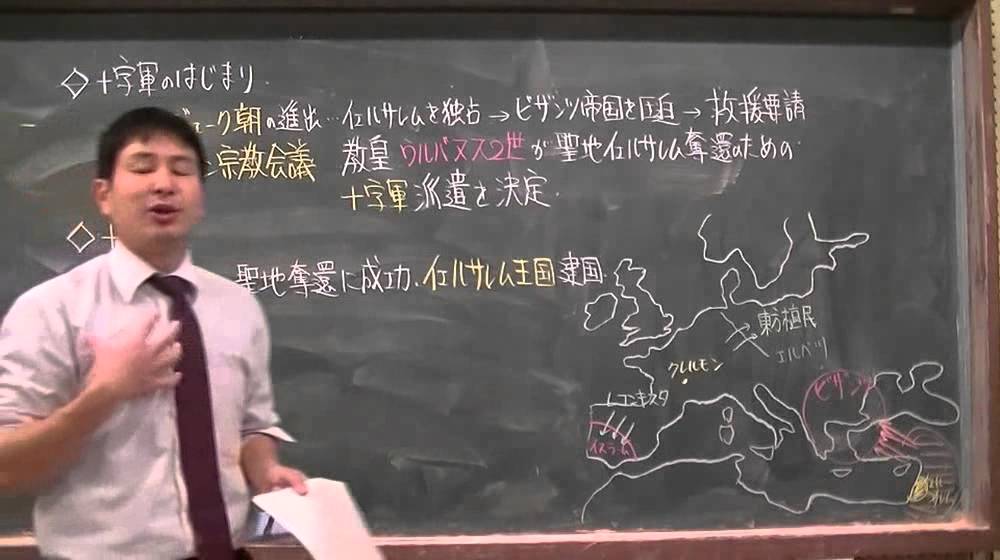 ◇十字軍のはじまり
ューク朝の進出…イェルサレムを独占→ビザンツ帝国を圧迫→救援要請
宗教会議 教皇ウルバヌス2世が聖地イェルサレム奪還のための
十字軍派遣を決定
◇十
聖地奪還に成功、イェルサレム王国建国
東方植民
エルベ川
クレルモン
レコンキスタ
イスラーム
ビザンツ